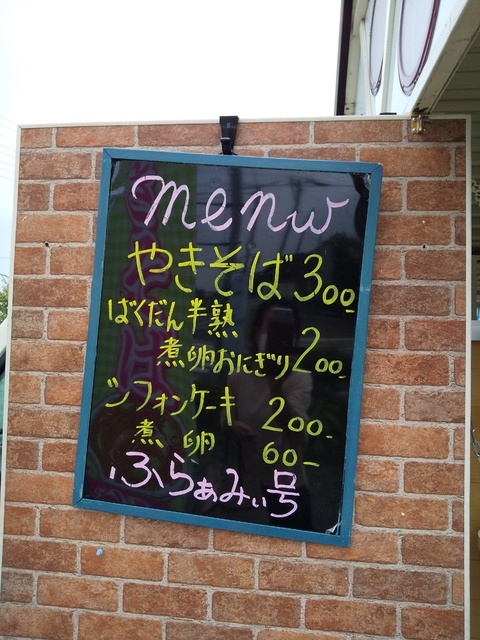 menu
やきそば300
ばくだん半熟
煮卵おにぎり200
シフォンケーキ 200.
煮卵 60-
ふらぁみぃ号